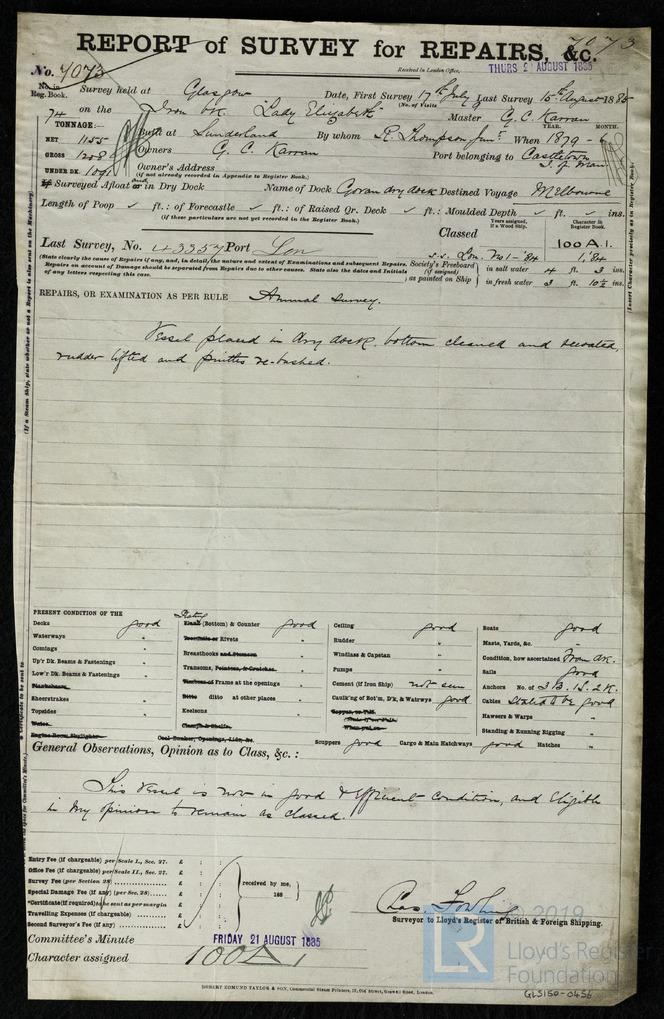 7073
REPORT of SURVEY for REPAIRS, &c.
No. 7073
Received in London Office, THURS 2 AUGUST 1885
No. in Reg. Book. Survey held at Glasgow Date, First Survey 17th July Last Survey 15th August 1885
(No. of Visits
74 on the Iron Bk "Lady Elizabeth" Master G. C. Karran
TONNAGE:— YEAR. MONTH.
NET 1155 Built at Sunderland By whom R. Thompson Junr. When 1879 - 6
GROSS 1208 Owners G. C. Karran Port belonging to Castletown
I. of Man
UNDER DK. 1091 Owner's Address
(if not already recorded in Appendix to Register Book.)
If Surveyed Afloat and or in Dry Dock Name of Dock Govan dry dock Destined Voyage Melbourne
Length of Poop ✓ ft.: of Forecastle ✓ ft.: of Raised Qr. Deck ✓ ft.: Moulded Depth ✓ ft. ✓ ins.
(if these particulars are not yet recorded in the Register Book.)
Classed Years assigned, if a Wood Ship. Character in Register Book.
100 A.1.
Last Survey, No. 43357 Port Lon s.s. Lon. No 1-'84 1,84
(State clearly the cause of Repairs if any, and, in detail, the nature and extent of Examinations and subsequent Repairs.
Repairs on account of Damage should be separated from Repairs due to other causes. State also the dates and Initials
of any letters respecting this case.)
Society's Freeboard (if assigned) as painted on Ship in salt water 4 ft. 3 ins.
in fresh water 3 ft. 10½ ins.
REPAIRS, OR EXAMINATION AS PER RULE Annual Survey.
Vessel placed in dry dock, bottom cleaned and recoated,
rudder lifted and pintles re-bushed.
PRESENT CONDITION OF THE
Decks good
Waterways "
Comings "
Up'r Dk. Beams & Fastenings "
Low'r Dk. Beams & Fastenings "
Planksheers
Sheerstrakes "
Topsides "
Wales
Engine Room Skylights
Plating
Plank (Bottom) & Counter good
Treenails or Rivets "
Breasthooks and Stemson "
Transoms, Pointers, & Crutches "
Timbers of Frame at the openings "
Ditto ditto at other places "
Keelsons "
Clamps & Shelfs
Coal Bunker, Openings, Lids, &c.
Ceiling good
Rudder "
Windlass & Capstan "
Pumps "
Cement (if Iron Ship) not seen
Caulk'ng of Bot'm, D'k, & Watrwys good
Copper, or Y.M.
Scuppers good Cargo & Main Hatchways good Hatches "
Boats good
Masts, Yards, &c. "
Condition, how ascertained From dk.
Sails good
Anchors No. of 3 B. 1 S. 2 K.
Cables Stated to be good
Hawsers & Warps "
Standing & Running Rigging "
General Observations, Opinion as to Class, &c. :
This Vessel is now in good & efficient condition, and Eligible
in my opinion to remain as classed.
Entry Fee (if chargeable) per Scale I., Sec. 27. £ : :
Office Fee (if chargeable) per Scale II., Sec. 27. £ : :
Survey Fee (per Section 28) £ : :
Special Damage Fee (if any) (per Sec. 28) £ : :
*Certificate (if required) to be sent as per margin £
Travelling Expenses (if chargeable) £ : :
Second Surveyor's Fee (if any) £ : :
received by me,
188
Chas. Fowling
Surveyor to Lloyd's Register of British & Foreign Shipping.
Committee's Minute FRIDAY 21 AUGUST 1885
Character assigned 100 A 1
ROBERT EDMUND TAYLOR & SON, Commercial Steam Printers, 19, Old Street, Goswell Road, London.
(If a Steam Ship, state whether or not a Report is also sent on the Machinery)
(Insert Character precisely as in Register Book.)
© 2019
LR
Lloyd's Register
Foundation
GLS150-0456